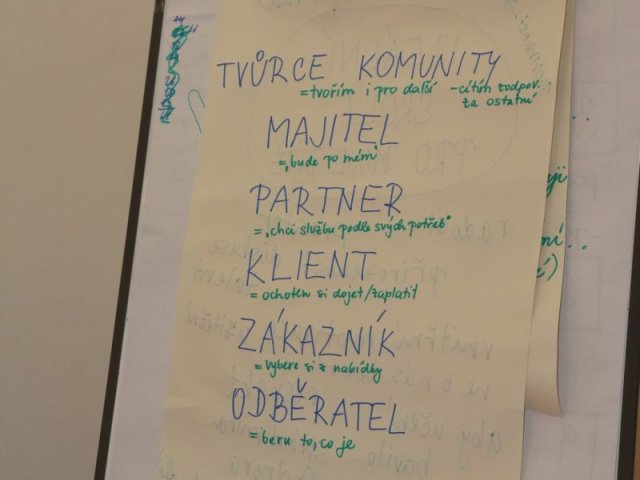 TVŮRCE KOMUNITY
=tvořím i pro další -cítím zodpov.
za ostatní
MAJITEL
=„bude po mém"
PARTNER
=„chci službu podle svých potřeb"
KLIENT
= ochoten si dojet/zaplatit
ZÁKAZNÍK
=vybere si z nabídky
ODBĚRATEL
=beru to, co je